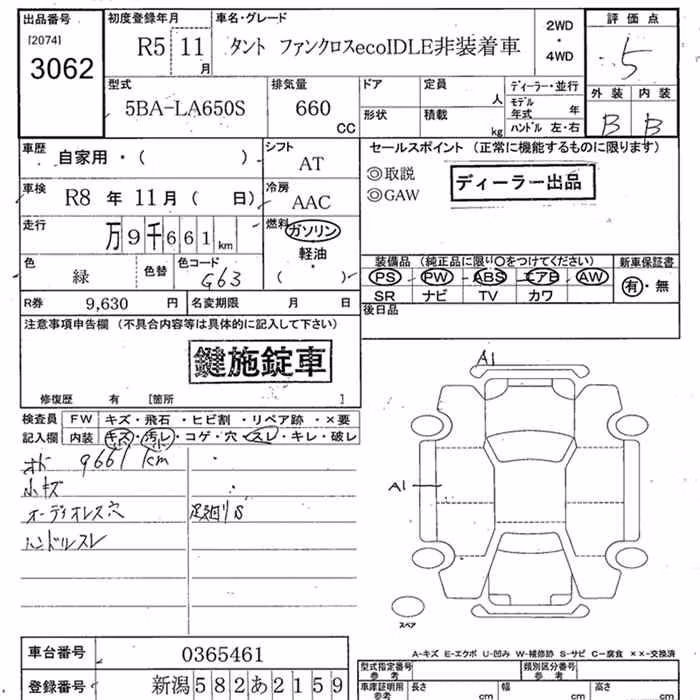 出品番号 初度登録年月 車名・グレード 2WD ・ 4WD 評価点
[2074]
3062 R5 11月 タント ファンクロスecoIDLE非装着車 5
型式 排気量 ドア 定員 人 ディーラー・並行 外装 内装
5BA-LA650S 660 CC 形状 積載 kg モデル年式 年 B B
ハンドル 左・右
車歴 自家用・( ) シフト AT セールスポイント (正常に機能するものに限ります)
◎取説
◎GAW
ディーラー出品
車検 R8 年 11月( 日) 冷房 AAC
走行 万9千661km 燃料 ガソリン
軽油
・
( )
色 緑 色替 色コード G63
装備品 (純正品に限り〇をつけてください) 新車保証書
PS PW ABS エアB AW 有・無
SR ナビ TV カワ
R券 9,630 円 名変期限 月 日 後日品
注意事項申告欄 (不具合内容等は具体的に記入して下さい)
鍵施錠車
修復歴 有 [箇所 ]
検査員 FW キズ・飛石・ヒビ割・リペア跡・×要
記入欄 内装 キズ・汚レ・コゲ・穴・スレ・キレ・破レ
9661km
小キズ
オーディオレス穴 足廻りS
ハンドルスレ
A1
A1
スペア
A-キズ E-エクボ U-凹み W-補修跡 S-サビ C-腐食 ××-交換済
車台番号 0365461
登録番号 新潟582あ2159
型式指定番号 参考 類別区分番号 参考
車庫証明用 参考 長さ cm 幅 cm 高さ cm